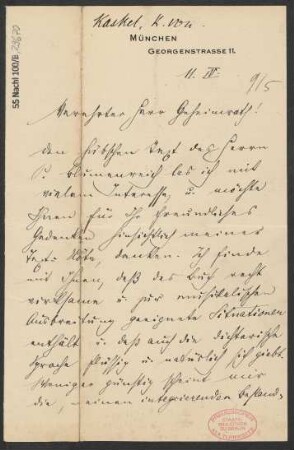 Kaskel, K. von
MÜNCHEN
GEORGENSTRASSE 11.
11. IV.
9/5
SS Nachl 100/B, 23670
Verehrter Herr Geheimrath!
Den hübschen Text des Herrn
P. Blumenreich las ich mit
vielem Interesse, u. möchte
Ihnen für Ihr freundliches
Gedenken hinsichtlich meiner
Text-Nöte, danken. Ich finde
mit Ihnen, daß das Buch recht
wirksame u. zur musikalischen
Ausbreitung geeignete Situationen
enthält u. daß auch die dichterische
Sprache flüssig u. natürlich sich giebt.
Weniger günstig scheint mir
die, einen integrierenden Bestand-